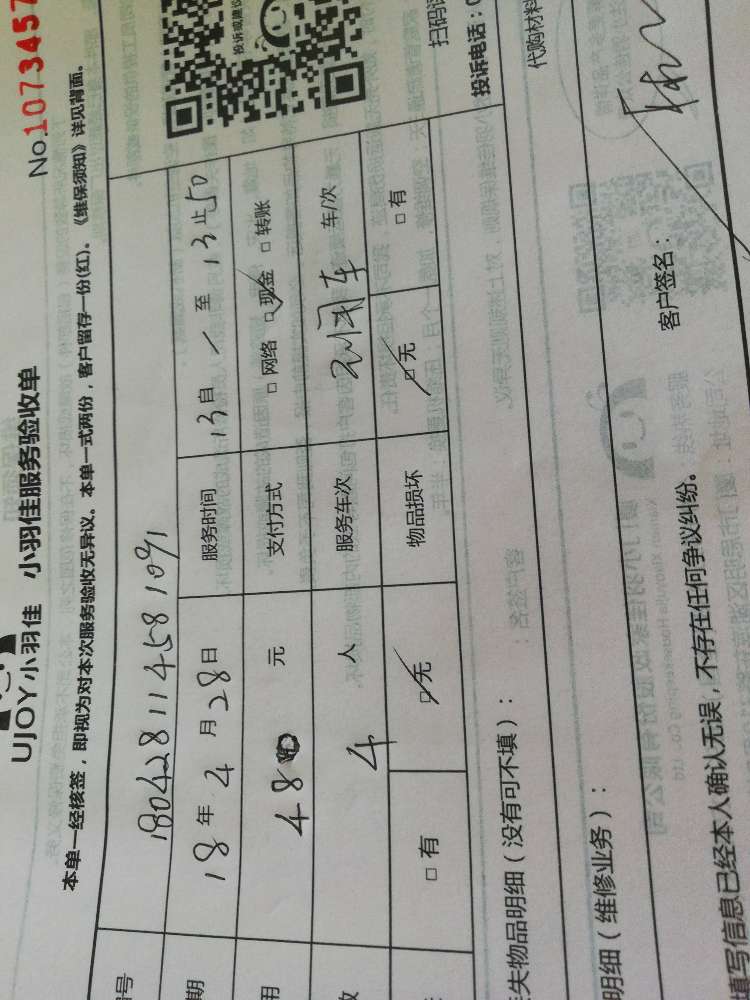 No.1073457
UJOY小羽佳 小羽佳服务验收单
本单一经核签，即视为对本次服务验收无异议。本单一式两份，客户留存一份(红)。《维保须知》详见背面。
投诉或建议
扫码
投诉电话：0
代购材料
编号 180428114581091
期 18年4月28日 服务时间 13自 至 13止50
用 480 元 支付方式 □ 网络 □ 现金 □ 转账
数 4 人 服务车次 车/次
□ 有 □ 无 物品损坏 □ 无 □ 有
失物品明细（没有可不填）：
明细（维修业务）：
客户签名：
填写信息已经本人确认无误，不存在任何争议纠纷。